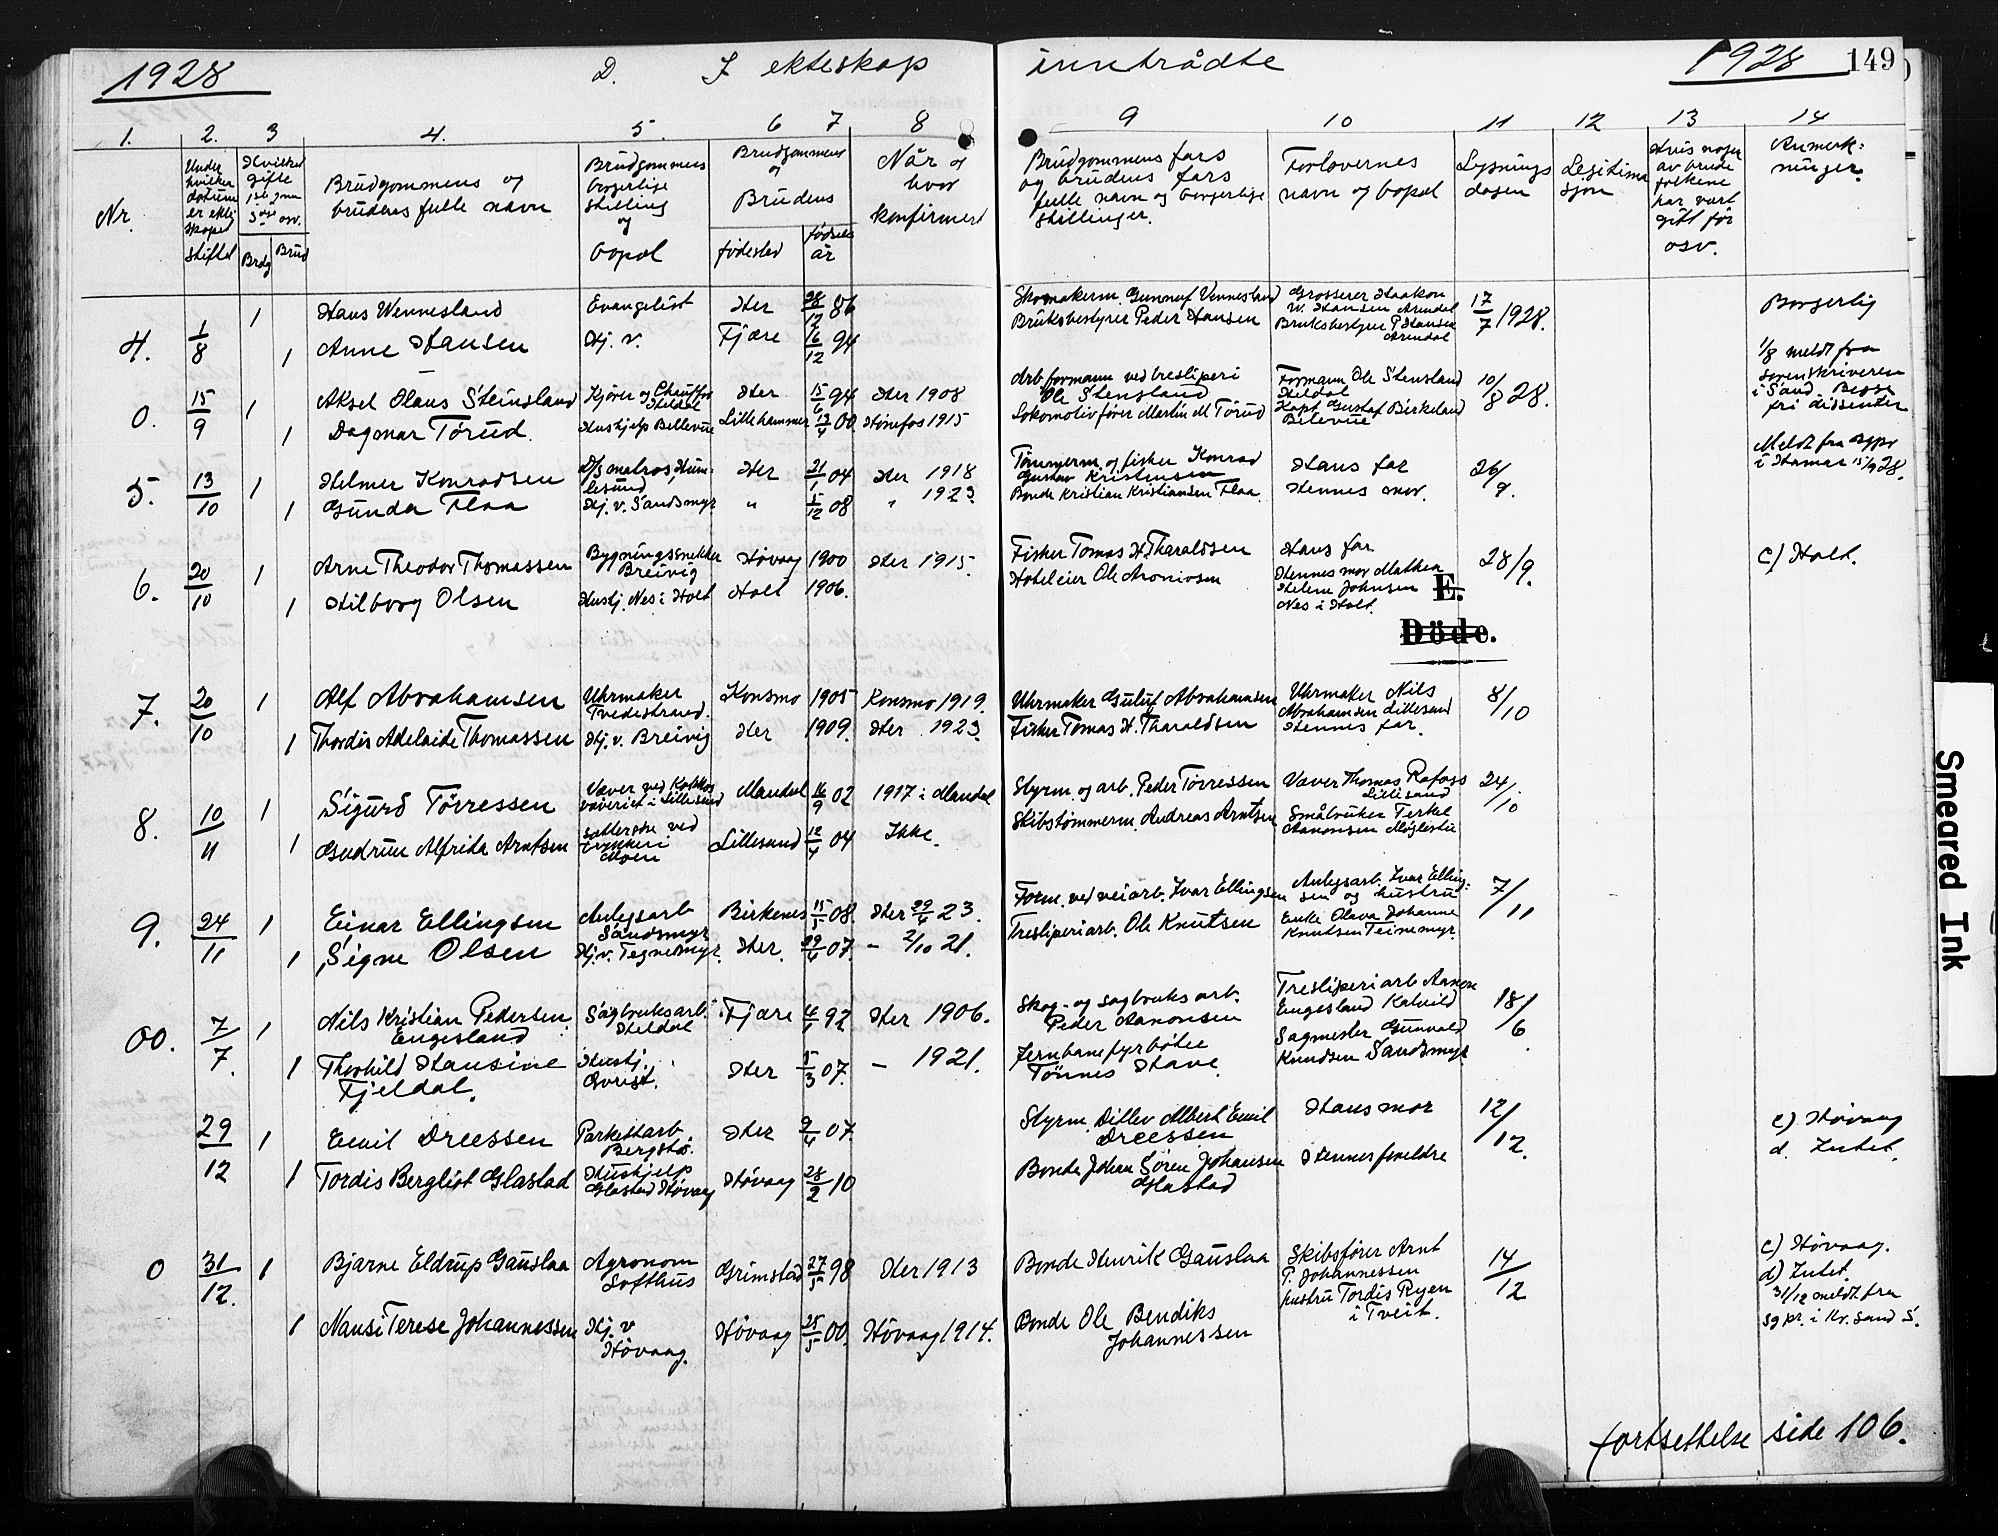 1928 D. I ekteskap inntrådte 1928 149
1. 2. 3 4. 5. 6 7 8 9 10 11 12 13 14
Nr.
Under hvilken datum er ekteskapet stiftet
Hvilket gifte 1ste 2net 3dje osv.
Brdg Brud
Brudgommens og
brudens fulle navn
Brudgommens
borgerlige
stilling
og
bopel
Brudgommens
og
Brudens
fødested
fødsels
år
Når og
hvor
konfirmert
Brudgommens fars
og brudens fars
fulle navn og borgerlige
stillinger.
Forlovernes
navn og bopel
Lysnings
dagen
Legitima
sjon
Hvis nogen
av brude
folkene
har vært
gift før
osv.
Anmerk:
ninger.
4. 1/8 1 Hans Wennesland Evangelist Her 28/12 86 Skomakerm. Gunnuf Vennesland Grosserer Haakon W. Hansen Arendal 17/7 1928. Borgerlig
1 Anne Hansen Hj. v. Fjære 16/12 94 Bruksbestyrer Peder Hansen Bruksbestyrer P Hansen Arendal
1/8 meldt fra
sorenskriveren
i Sand. Begge
fri dissenter
0. 15/9 1 Aksel Olaus Steinsland Kjører og Chauffør Heldal Her 15/6 94 Her 1908 Arb.formann ved tresliperi Ole Stensland Formann Ole Stensland Heldal 10/8 28.
1 Dagmar Tørud. Hushjelp Bellevue Lillehammer 13/4 00 Hønefos 1915 Lokomotivfører Martin M Tørud Kapt Gustaf Birkeland Bellevue
Meldt fra sgpr
i Hamar 15/9 28.
5. 13/10 1 Helmer Konradsen D/S matros, Humlesund Her 21/1 04 Her 1918 Tømmerm. og fisker Konrad Gustav Kristensen Hans far 26/9.
1 Gunda Flaa Hj. v. Sandsmyr " 5/12 08 " 1923. Bonde Kristian Kristiansen Flaa. Hennes mor.
6. 20/10 1 Arne Theodor Thomassen Bygningssnekker Breivig Høvaag 1900 Her 1915. Fisker Tomas H. Tharaldsen Hans far 28/9. c) Holt.
1 Hilborg Olsen Hushj. Nes i Holt Holt 1906. Hoteleier Ole Aroniosen Hennes mor Mathea Helene Johnsen Nes i Holt.
E.
Döde.
7. 20/10 1 Alf Abrahamsen Uhrmaker Tvedestrand. Konsmo 1905 Konsmo 1919. Uhrmaker Guluf Abrahamsen Uhrmaker Nils Abrahamsen Lillesand 8/10
1 Thordis Adelaide Thomassen Hj. v. Breivig Her 1909. Her 1923. Fisker Tomas H. Tharaldsen Hennes far.
8. 10/11 1 Sigurd Tørressen Væver ved væveriet i Lillesand Mandal 16/9 02 1917 i Mandal Styrm. og arb. Peder Tørressen Væver Thomas Lillesand 24/10
1 Gudrun Alfrida Arntsen ved trykkeri Moen Lillesand 12/4 04 Ikke. Skibstømmerm. Andreas Arntsen Småbruker Terkel Aanonsen
9. 24/11 1 Einar Ellingsen Anlegsarb Sandsmyr Birkenes 15/5 08. Her 29/4 23. Form. ved veiarb. Ivar Ellingsen Anlegsarb. Ivar Ellingsen og hustru 7/11
1 Signe Olsen Hj. v. Teinesmyr. Her. 29/6 07. - 2/10 21. Tresliperiarb. Ole Knutsen Enke Olava Johanne Knutsen Teinemyr.
00. 7/7. 1 Nils Kristian Pedersen Engesland Sagbruksarb. Heldal Fjære 4/1 92 Her 1906. Skog- og sagbruks arb. Peder Aanonsen Tresliperiarb Engesland 18/6.
1 Thorhild Hansine Fjeldal. Hushj. Øvrist. Her 5/3 07. - 1921. Jernbanefyrbøter Tønnes Have. Sagmester Gunvald Knudsen Sandsmyr
29/12 1 Emil Dreessen Parkettarb. Bergstø. Her 9/4 07. Styrm. Ditlev Albert Emil Dreessen Hans mor 12/12. c) Høvaag
d. Intet.
1 Tordis Bergliot Glastad Hushjelp Glastad Høvaag Høvaag 28/2 10 Bonde Johan Søren Johansen Glastad Hennes foreldre
0 31/12. 1 Bjarne Eldrup Gauslaa Agronom Softhus Grimstad 27/5 98 Her 1913 Bonde Henrik Gauslaa Skibsfører Arnt P. Johannessen 14/12 c) Høvaag.
d) Intet.
1 Nansi Terese Johannessen Hj. v Høvaag. Høvaag 25/5 00. Høvaag 1914. Bonde Ole Bendiks Johannessen hustru Tordis Ryen i Tveit.
31/12 meldt fra
sgpr. i Kr. sand S.
fortsettelse side 106.
Smeared Ink